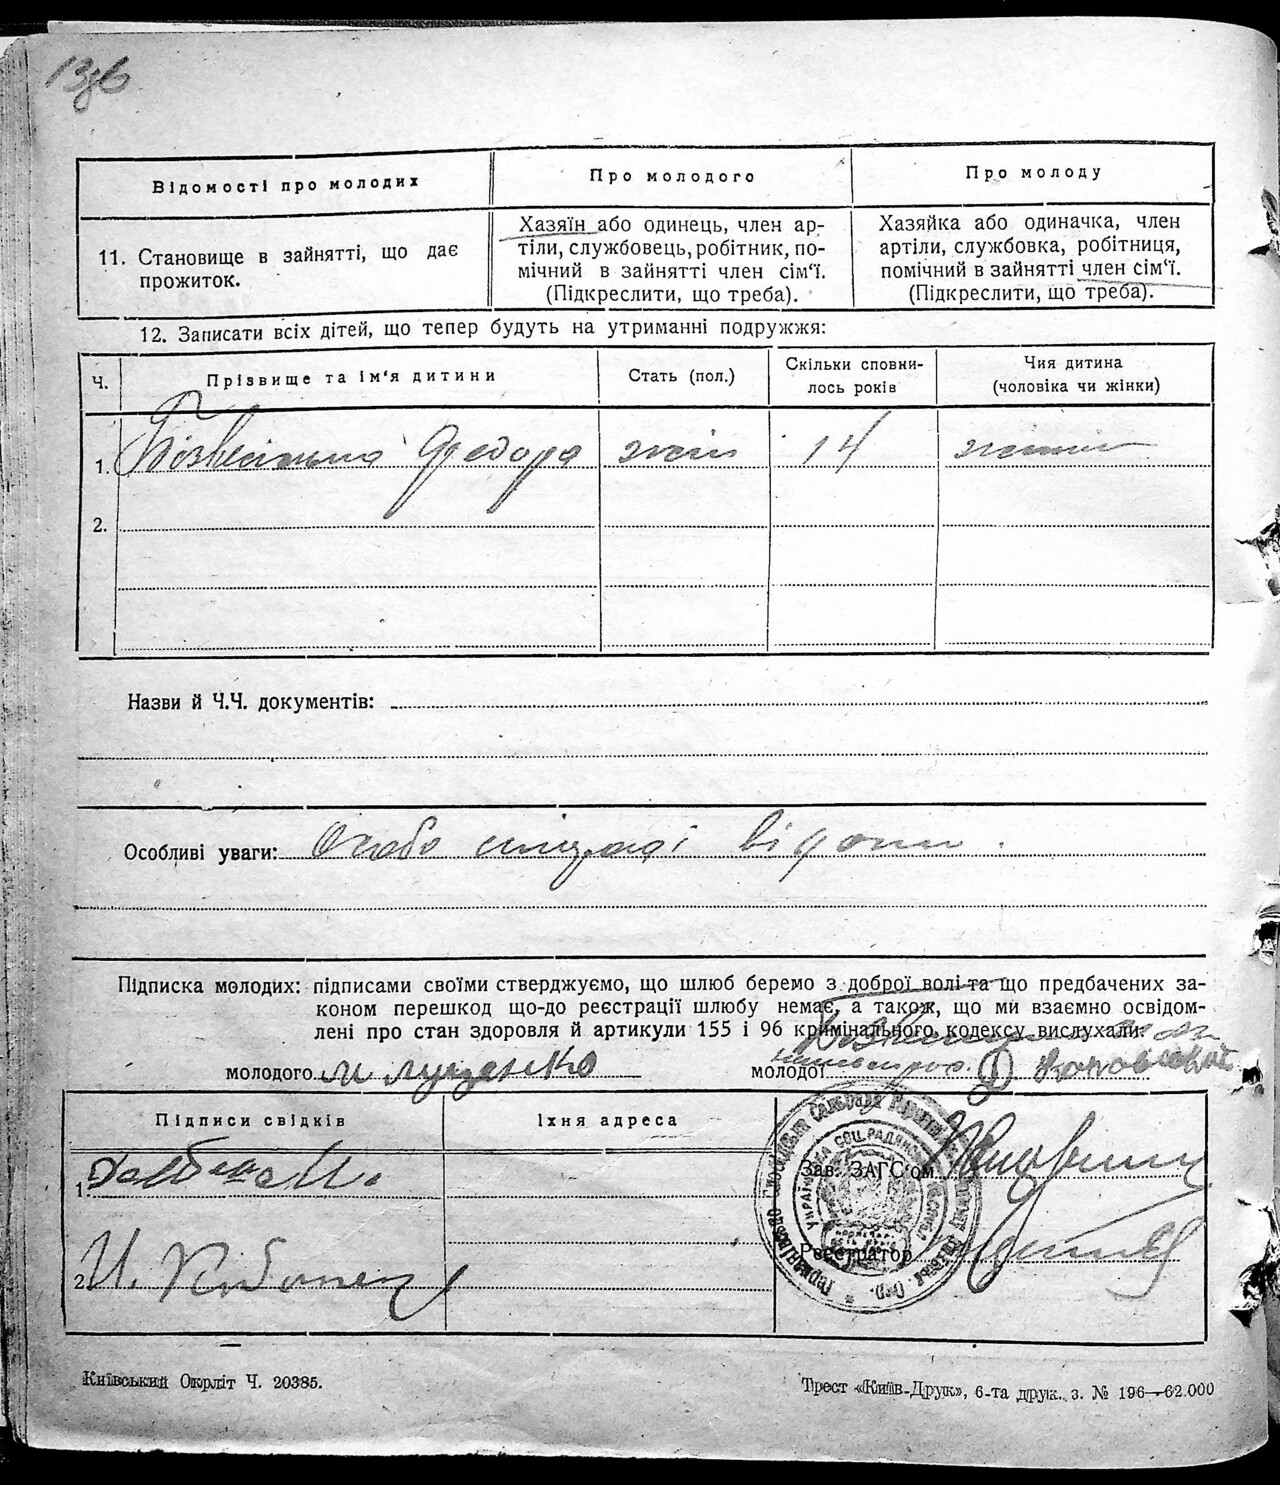 13зв
Відомості про молодих
Про молодого
Про молоду
11. Становище в зайнятті, що дає
прожиток.
Хазяїн або одинець, член ар-
тіли, службовець, робітник, по-
мічний в зайнятті член сім'ї.
(Підкреслити, що треба).
Хазяйка або одиначка, член
артіли, службовка, робітниця,
помічний в зайнятті член сім'ї.
(Підкреслити, що треба).
12. Записати всіх дітей, що тепер будуть на утриманні подружжя:
Ч.
Прізвище та ім'я дитини
Стать (пол.)
Скільки сповни-
лось років
Чия дитина
(чоловіка чи жінки)
1. Федора жін 14
2.
Назви й Ч.Ч. документів:
Особливі уваги: Особо відомі.
Підписка молодих: підписами своїми стверджуємо, що шлюб беремо з доброї волі та що предбачених за-
коном перешкод що-до реєстрації шлюбу немає, а також, що ми взаємно освідом-
лені про стан здоровля й артикули 155 і 96 кримінального кодексу вислухали.
молодого М Луценко молодої
Підписи свідків
Їхня адреса
Зав. ЗАГС'ом
1.
Реєстратор
2. И.
Київський Окрліт Ч. 20385.
Трест «Київ-Друк», 6-та друк. з. № 196—62.000